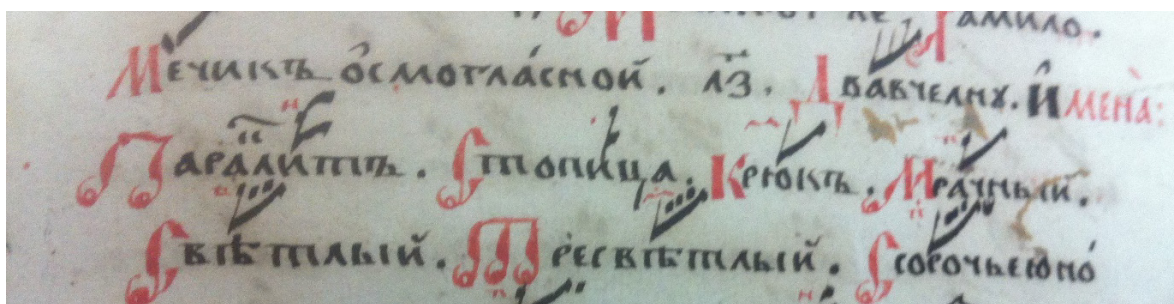 Мечикъ о҆смогла́сной. л҃з. Два в челну. И҆мена̀:
Параклитъ. Стопи́ца. Крюкъ. Мра́чный.
Свѣтлый. Тресвѣтлый. Ссорочьею но́